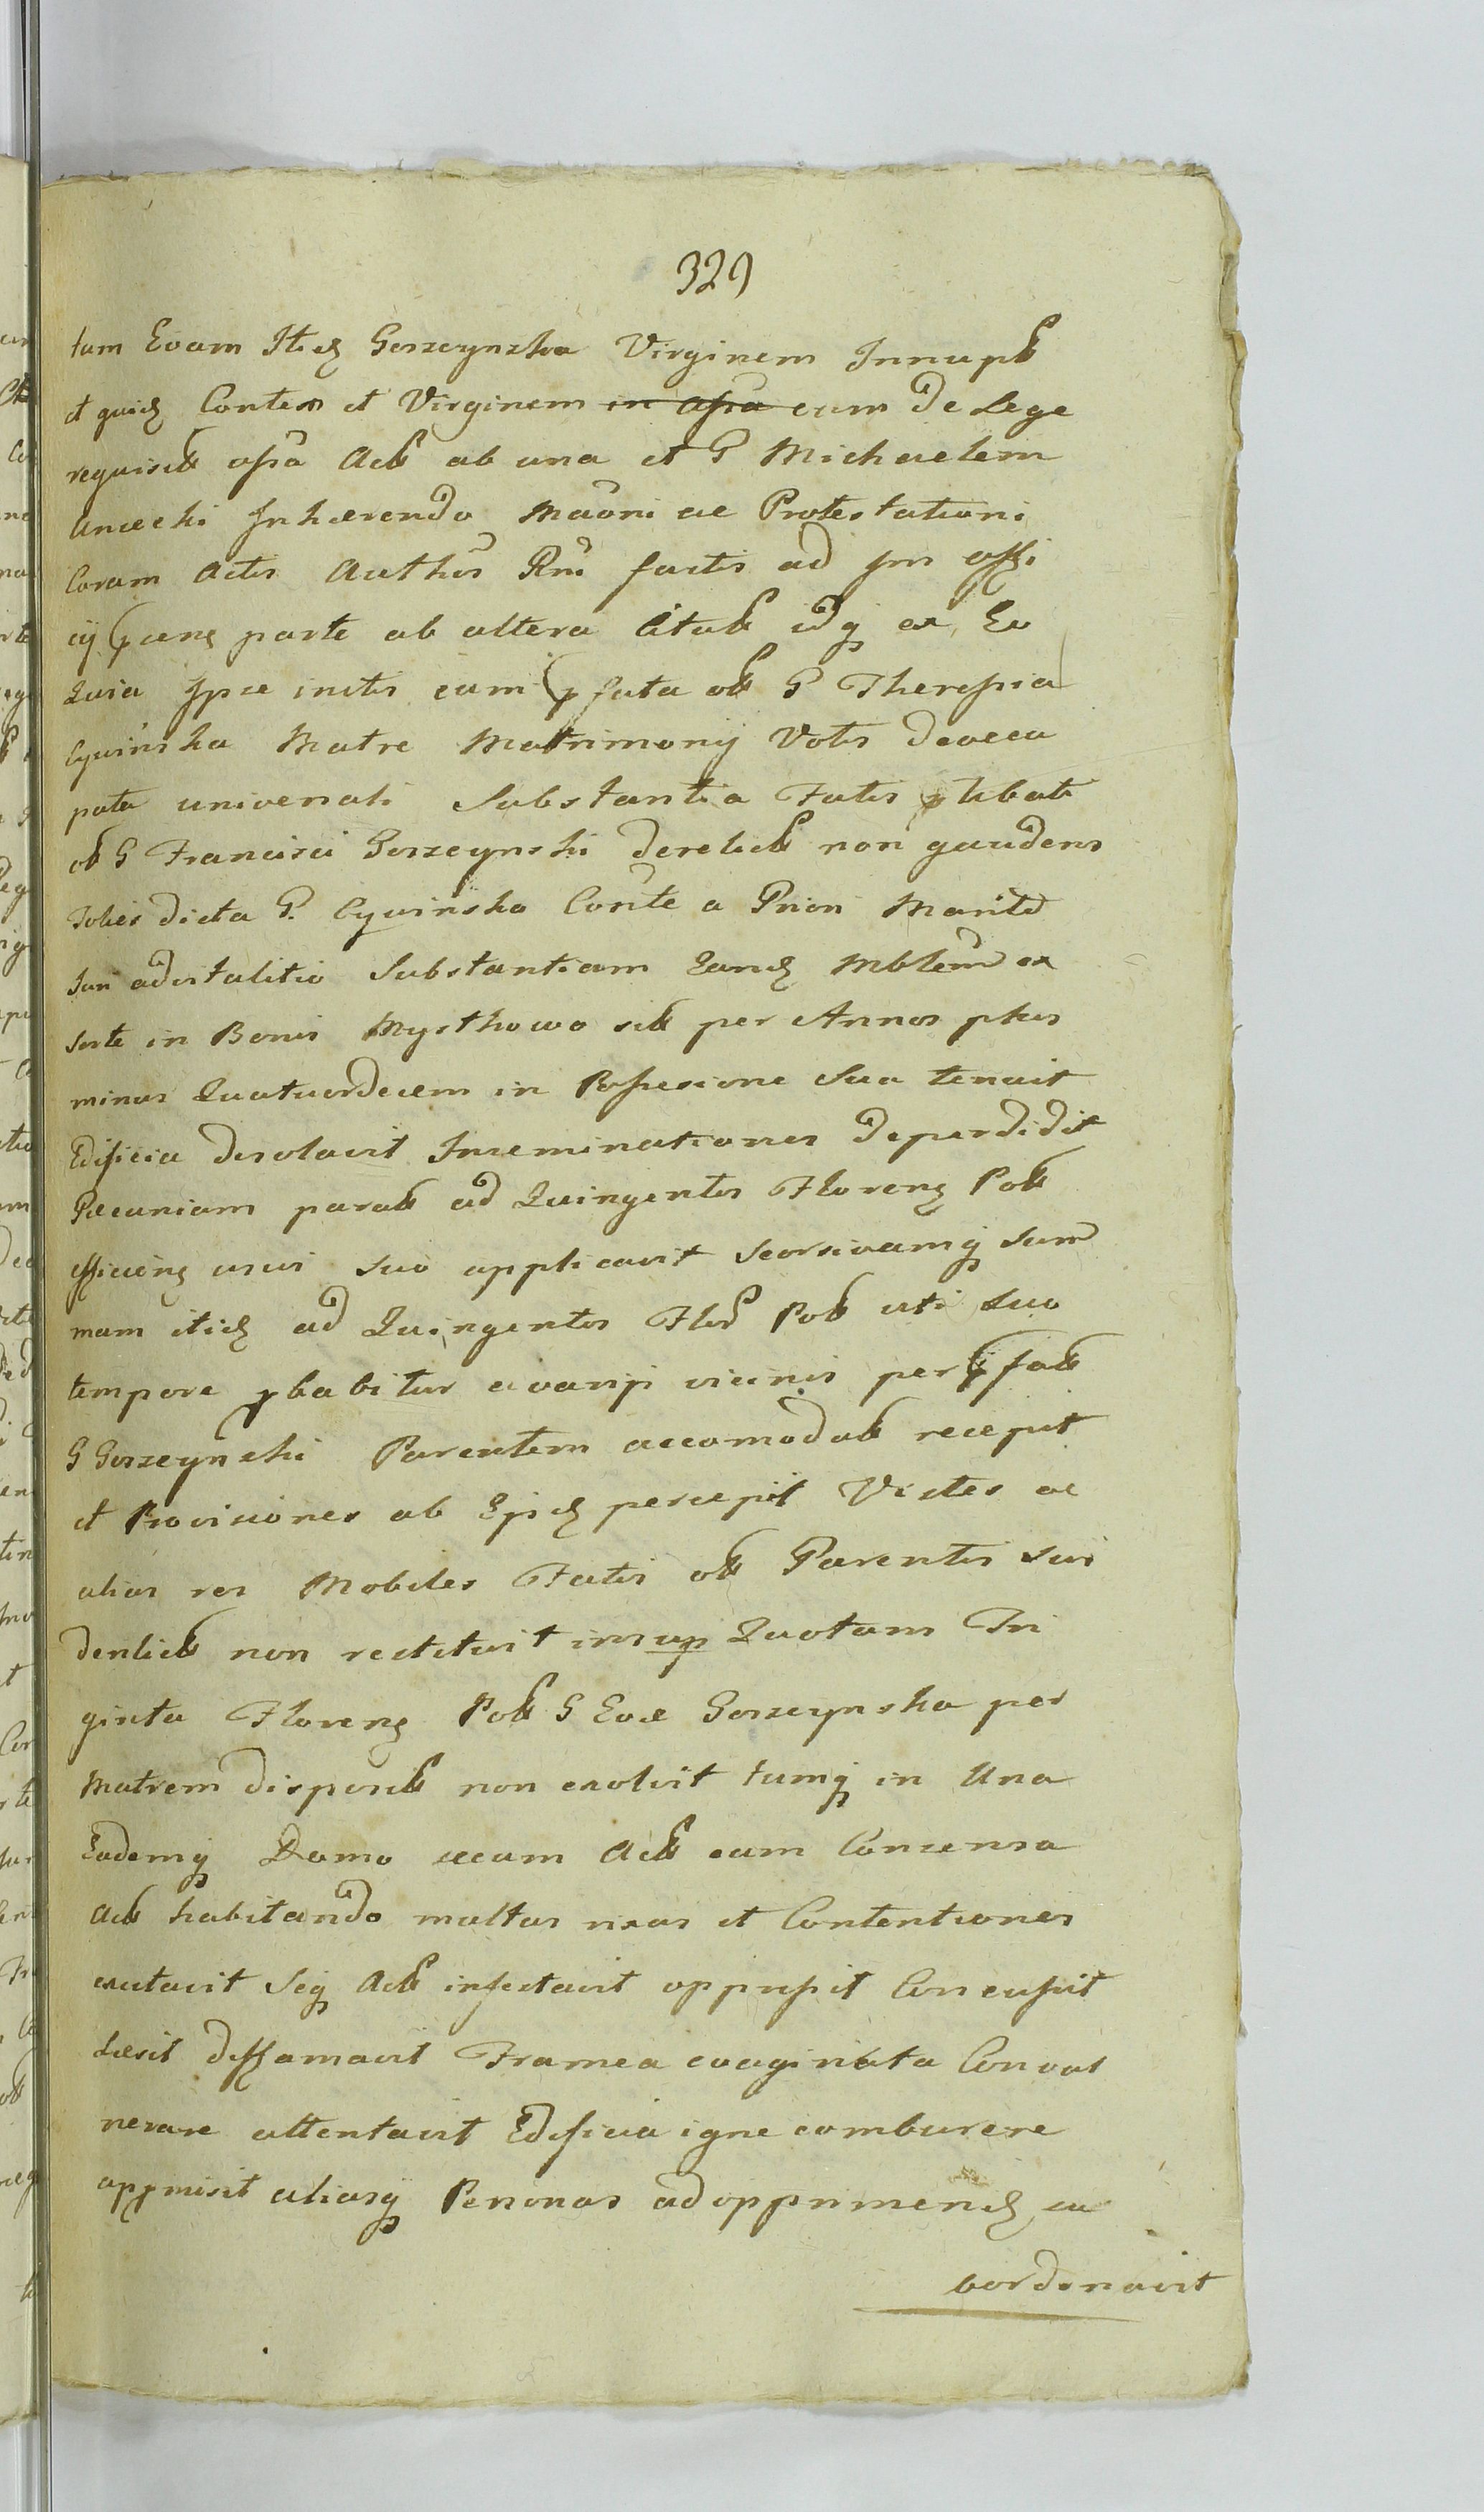 329
tum Evam Itid Gorzeynska Virginem Innupt
et quid Conten et Virginem in aspa cum de Lege
requisit aspa Act ab una et G Michaelem
Inhærendo Maoni ac Protestationi
Coram Actis Auth Rm factis ad offi
cij parte ab altera Citat idq ex Eo
Quia Ipse initis cum fata ol G Theressia
Cywinska Matre Matrimonij Votis deoccu
pata universali Substantia Fatis
ol G Francisci Gorzeynski derelict non gaudens
Toties dicta G. Cywinska Conte a Priori Marito
Sui Substantiam Eand Mblem ex
Sorte in Bonis Mysthowo sit per Annos plus
minus Quatuordecem in Possesione Sua tenuit
Edificia desolavit Inseminationes deperdidit
Pecuniam parat ad Quingentos Floren Pol
efficien usui suo applicavit Seorsivamq Sum
mam itid ad Quingentos Flor Pol uti Suo
tempore pbabitur a varijs vicinis per fat
G Gorzeynski Parentem accomodat recepit
et Provisiones ab Ijsd percepit Vestes ac
alias res Mobiles Fatis ol Parentis Sui
derlict non restituit insup Quotam Tri
ginta Floren Pol G Evæ Gorzeynska per
Matrem disposit non exolvit tumq in Una
Eademq Domo secum Act cum Consensa
Act habitando multas rixas et Contentiones
excitavit Seq Act infestavit oppressit Concussit
Læsit diffamavit Framea evaginata Convul
nerare attentavit Edificia igne comburere
appmisit aliasq Personas ad opprimend ea
oordinavit